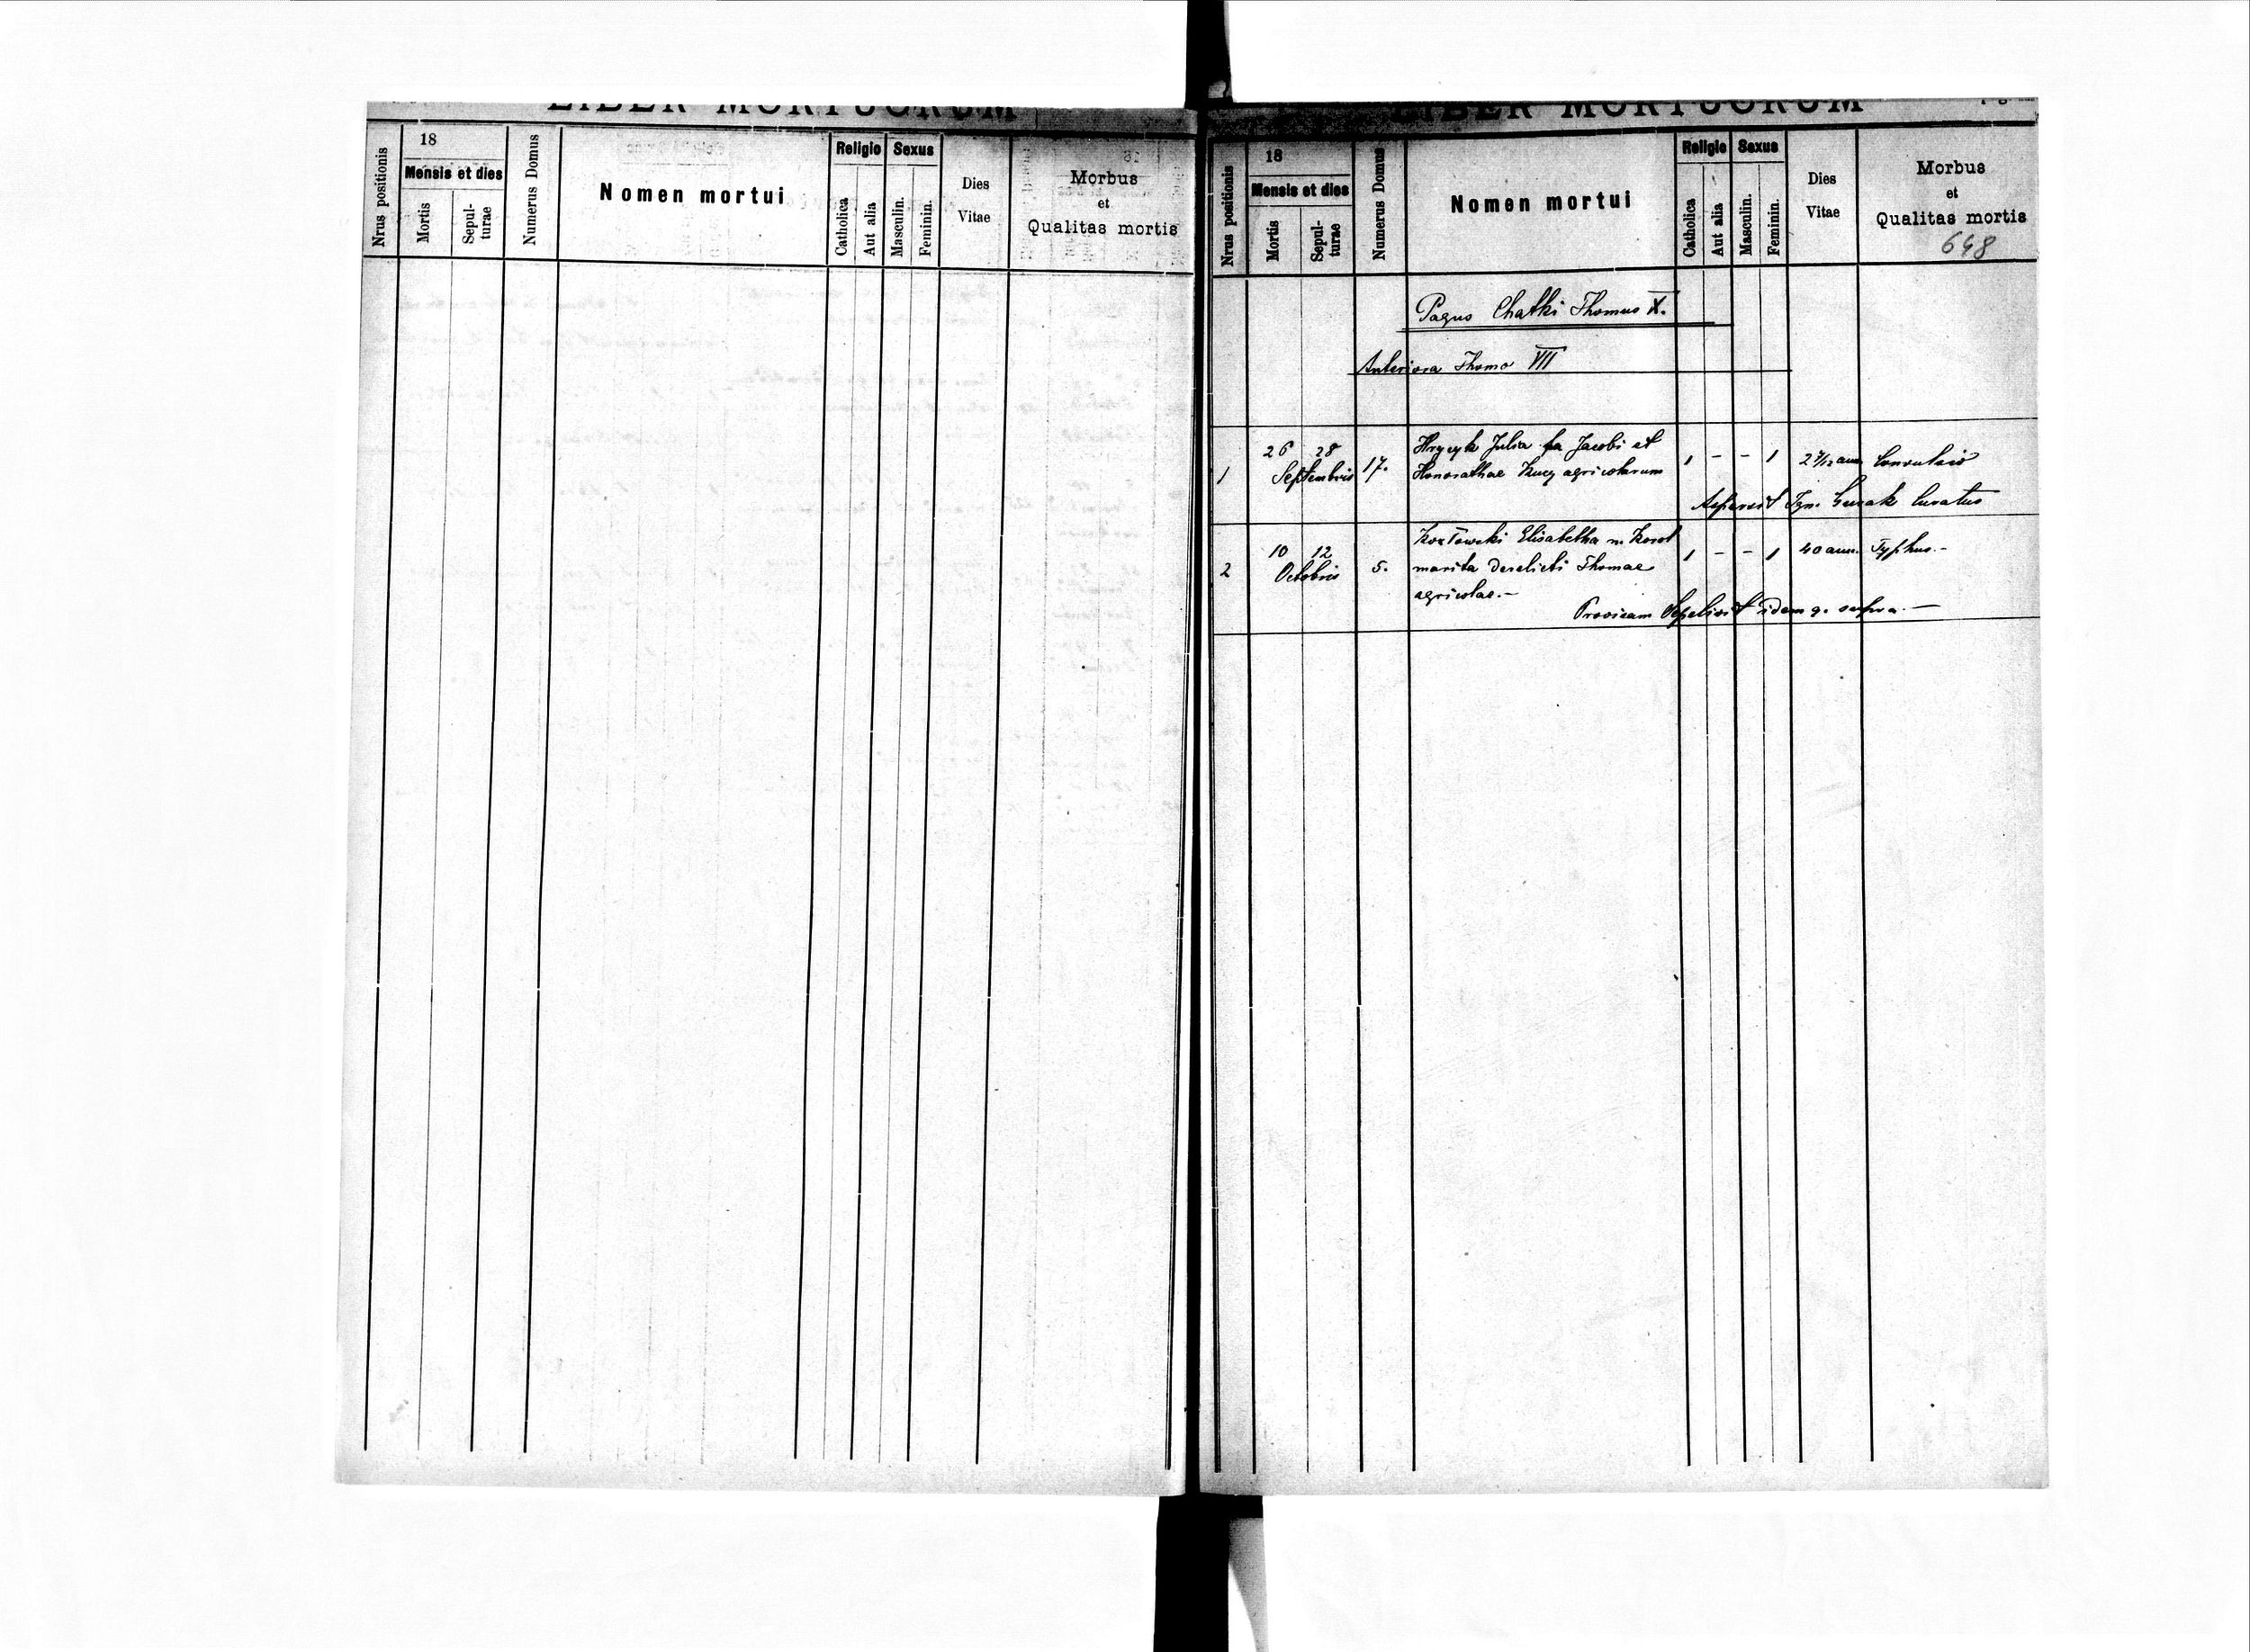 LIBER MORTUORUM
Nrus positionis
18
Mensis et dies
Mortis
Sepul-
turae
Numerus Domus
Nomen mortui
Religio
Catholica
Aut alia
Sexus
Masculin.
Feminin.
Dies
Vitae
Morbus
et
Qualitas mortis
LIBER MORTUORUM
Nrus positionis
18
Mensis et dies
Mortis
Sepul-
turae
Numerus Domus
Nomen mortui
Religio
Catholica
Aut alia
Sexus
Masculin.
Feminin.
Dies
Vitae
Morbus
et
Qualitas mortis
648
Pagus Chatki Thomus X.
Anteriora Thomo VII
1 26 28 Septembris 17. Hrycyk Julia fa Jacobi et
Honorathae Kucz agricolarum 1 - - 1 2 7/12 ann Convulsio
Aspersit Ign. Curatus
2 10 12 Octobris 5. Kozłowski Elisabetha n. Korol
marita derelicti Thomae 1 - - 1 40 ann. Typhus.-
agricolae.-
Provisam Sepelivit idem q. supra.-